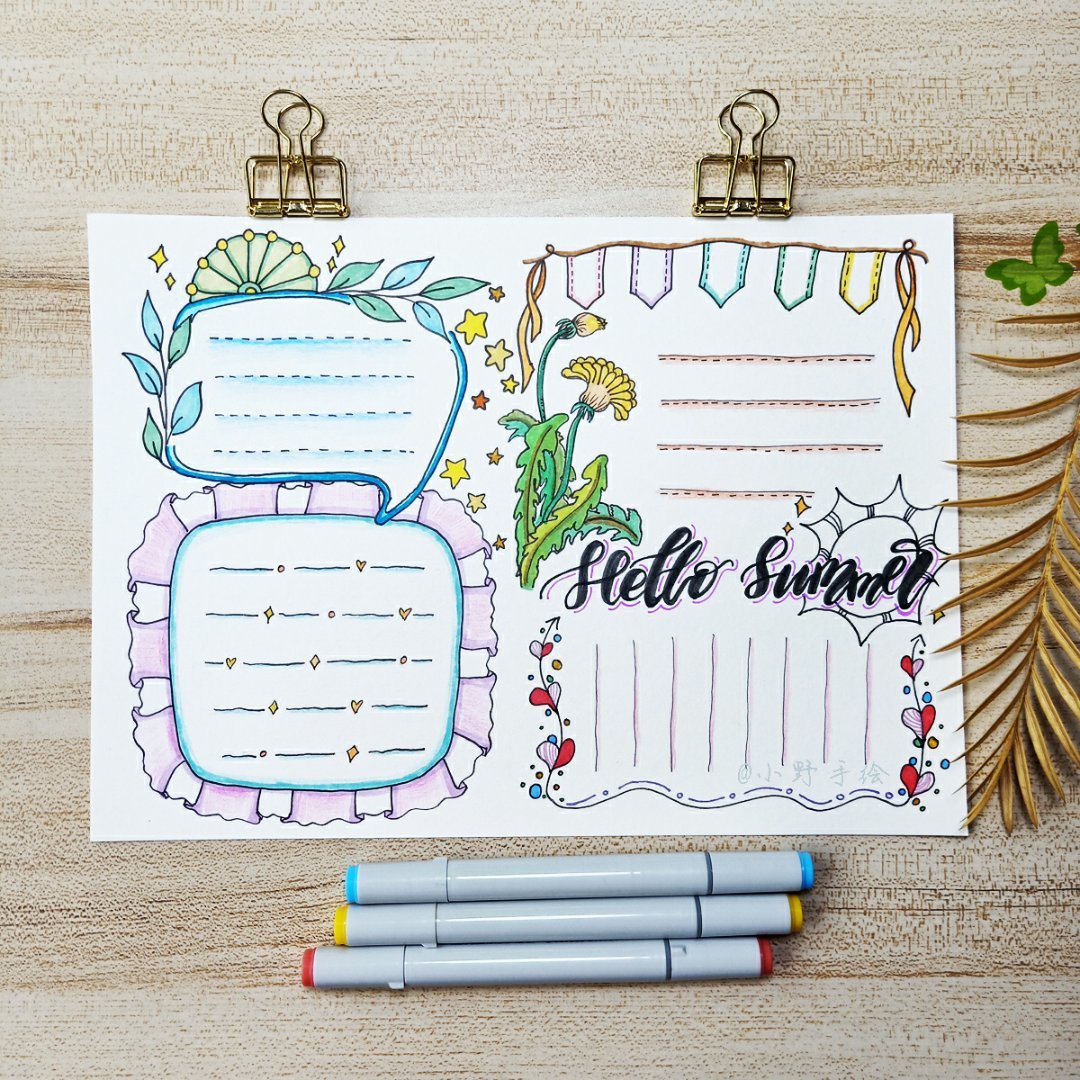 Hello Summer
@小野手绘